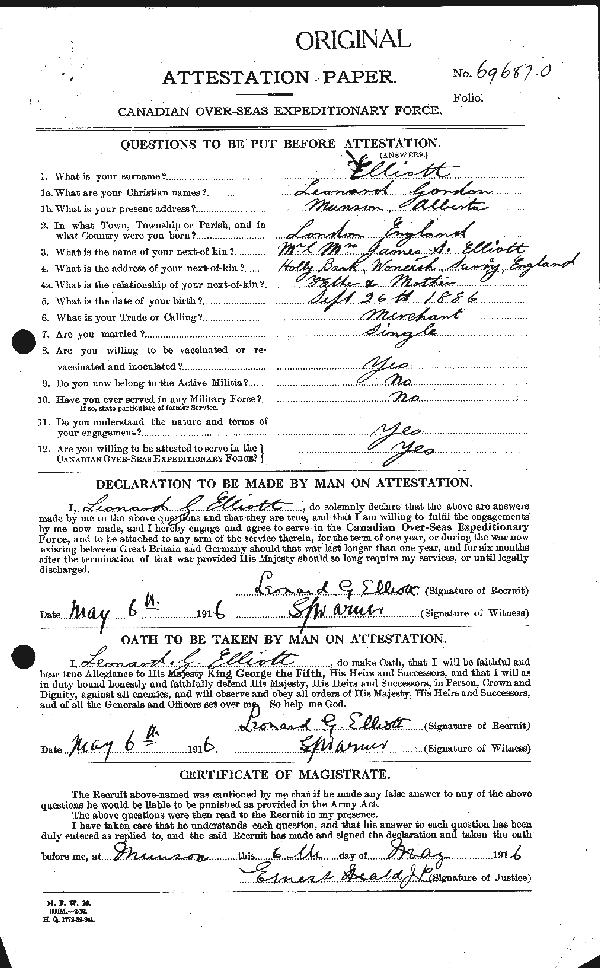 ORIGINAL
ATTESTATION PAPER.
No. 696870
Folio.
CANADIAN OVER-SEAS EXPEDITIONARY FORCE.
QUESTIONS TO BE PUT BEFORE ATTESTATION.
(ANSWERS.)
1. What is your surname? Elliott
1a. What are your Christian names? Leonard Gordon
1b. What is your present address? Munson Alberta
2. In what Town, Township or Parish, and in
what Country were you born? London England
3. What is the name of your next-of-kin? Mr & Mrs James S. Elliott
4. What is the address of your next-of-kin? Holly Bank, Wonersh Surrey, England
4a. What is the relationship of your next-of-kin? Father & Mother
5. What is the date of your birth? Sept 26th 1886
6. What is your Trade or Calling? Merchant
7. Are you married? Single
8. Are you willing to be vaccinated or re-
vaccinated and inoculated? Yes
9. Do you now belong to the Active Militia? No
10. Have you ever served in any Military Force? No
If so, state particulars of former Service.
11. Do you understand the nature and terms of
your engagement? Yes
12. Are you willing to be attested to serve in the
CANADIAN OVER-SEAS EXPEDITIONARY FORCE? Yes
DECLARATION TO BE MADE BY MAN ON ATTESTATION.
I, Leonard G Elliott, do solemnly declare that the above are answers
made by me to the above questions and that they are true, and that I am willing to fulfil the engagements
by me now made, and I hereby engage and agree to serve in the Canadian Over-Seas Expeditionary
Force, and to be attached to any arm of the service therein, for the term of one year, or during the war now
existing between Great Britain and Germany should that war last longer than one year, and for six months
after the termination of that war provided His Majesty should so long require my services, or until legally
discharged.
Leonard G Elliott (Signature of Recruit)
Date May 6th 1916 (Signature of Witness)
OATH TO BE TAKEN BY MAN ON ATTESTATION.
I, Leonard G. Elliott, do make Oath, that I will be faithful and
bear true Allegiance to His Majesty King George the Fifth, His Heirs and Successors, and that I will as
in duty bound honestly and faithfully defend His Majesty, His Heirs and Successors, in Person, Crown and
Dignity, against all enemies, and will observe and obey all orders of His Majesty, His Heirs and Successors,
and of all the Generals and Officers set over me. So help me God.
Leonard G Elliott (Signature of Recruit)
Date May 6th 1916 (Signature of Witness)
CERTIFICATE OF MAGISTRATE.
The Recruit above-named was cautioned by me that if he made any false answer to any of the above
questions he would be liable to be punished as provided in the Army Act.
The above questions were then read to the Recruit in my presence.
I have taken care that he understands each question, and that his answer to each question has been
duly entered as replied to, and the said Recruit has made and signed the declaration and taken the oath
before me, at Munson this 6th day of May 1916
Ernest J.P. (Signature of Justice)
M. F. W. 23.
H. Q. 1772-39-841.